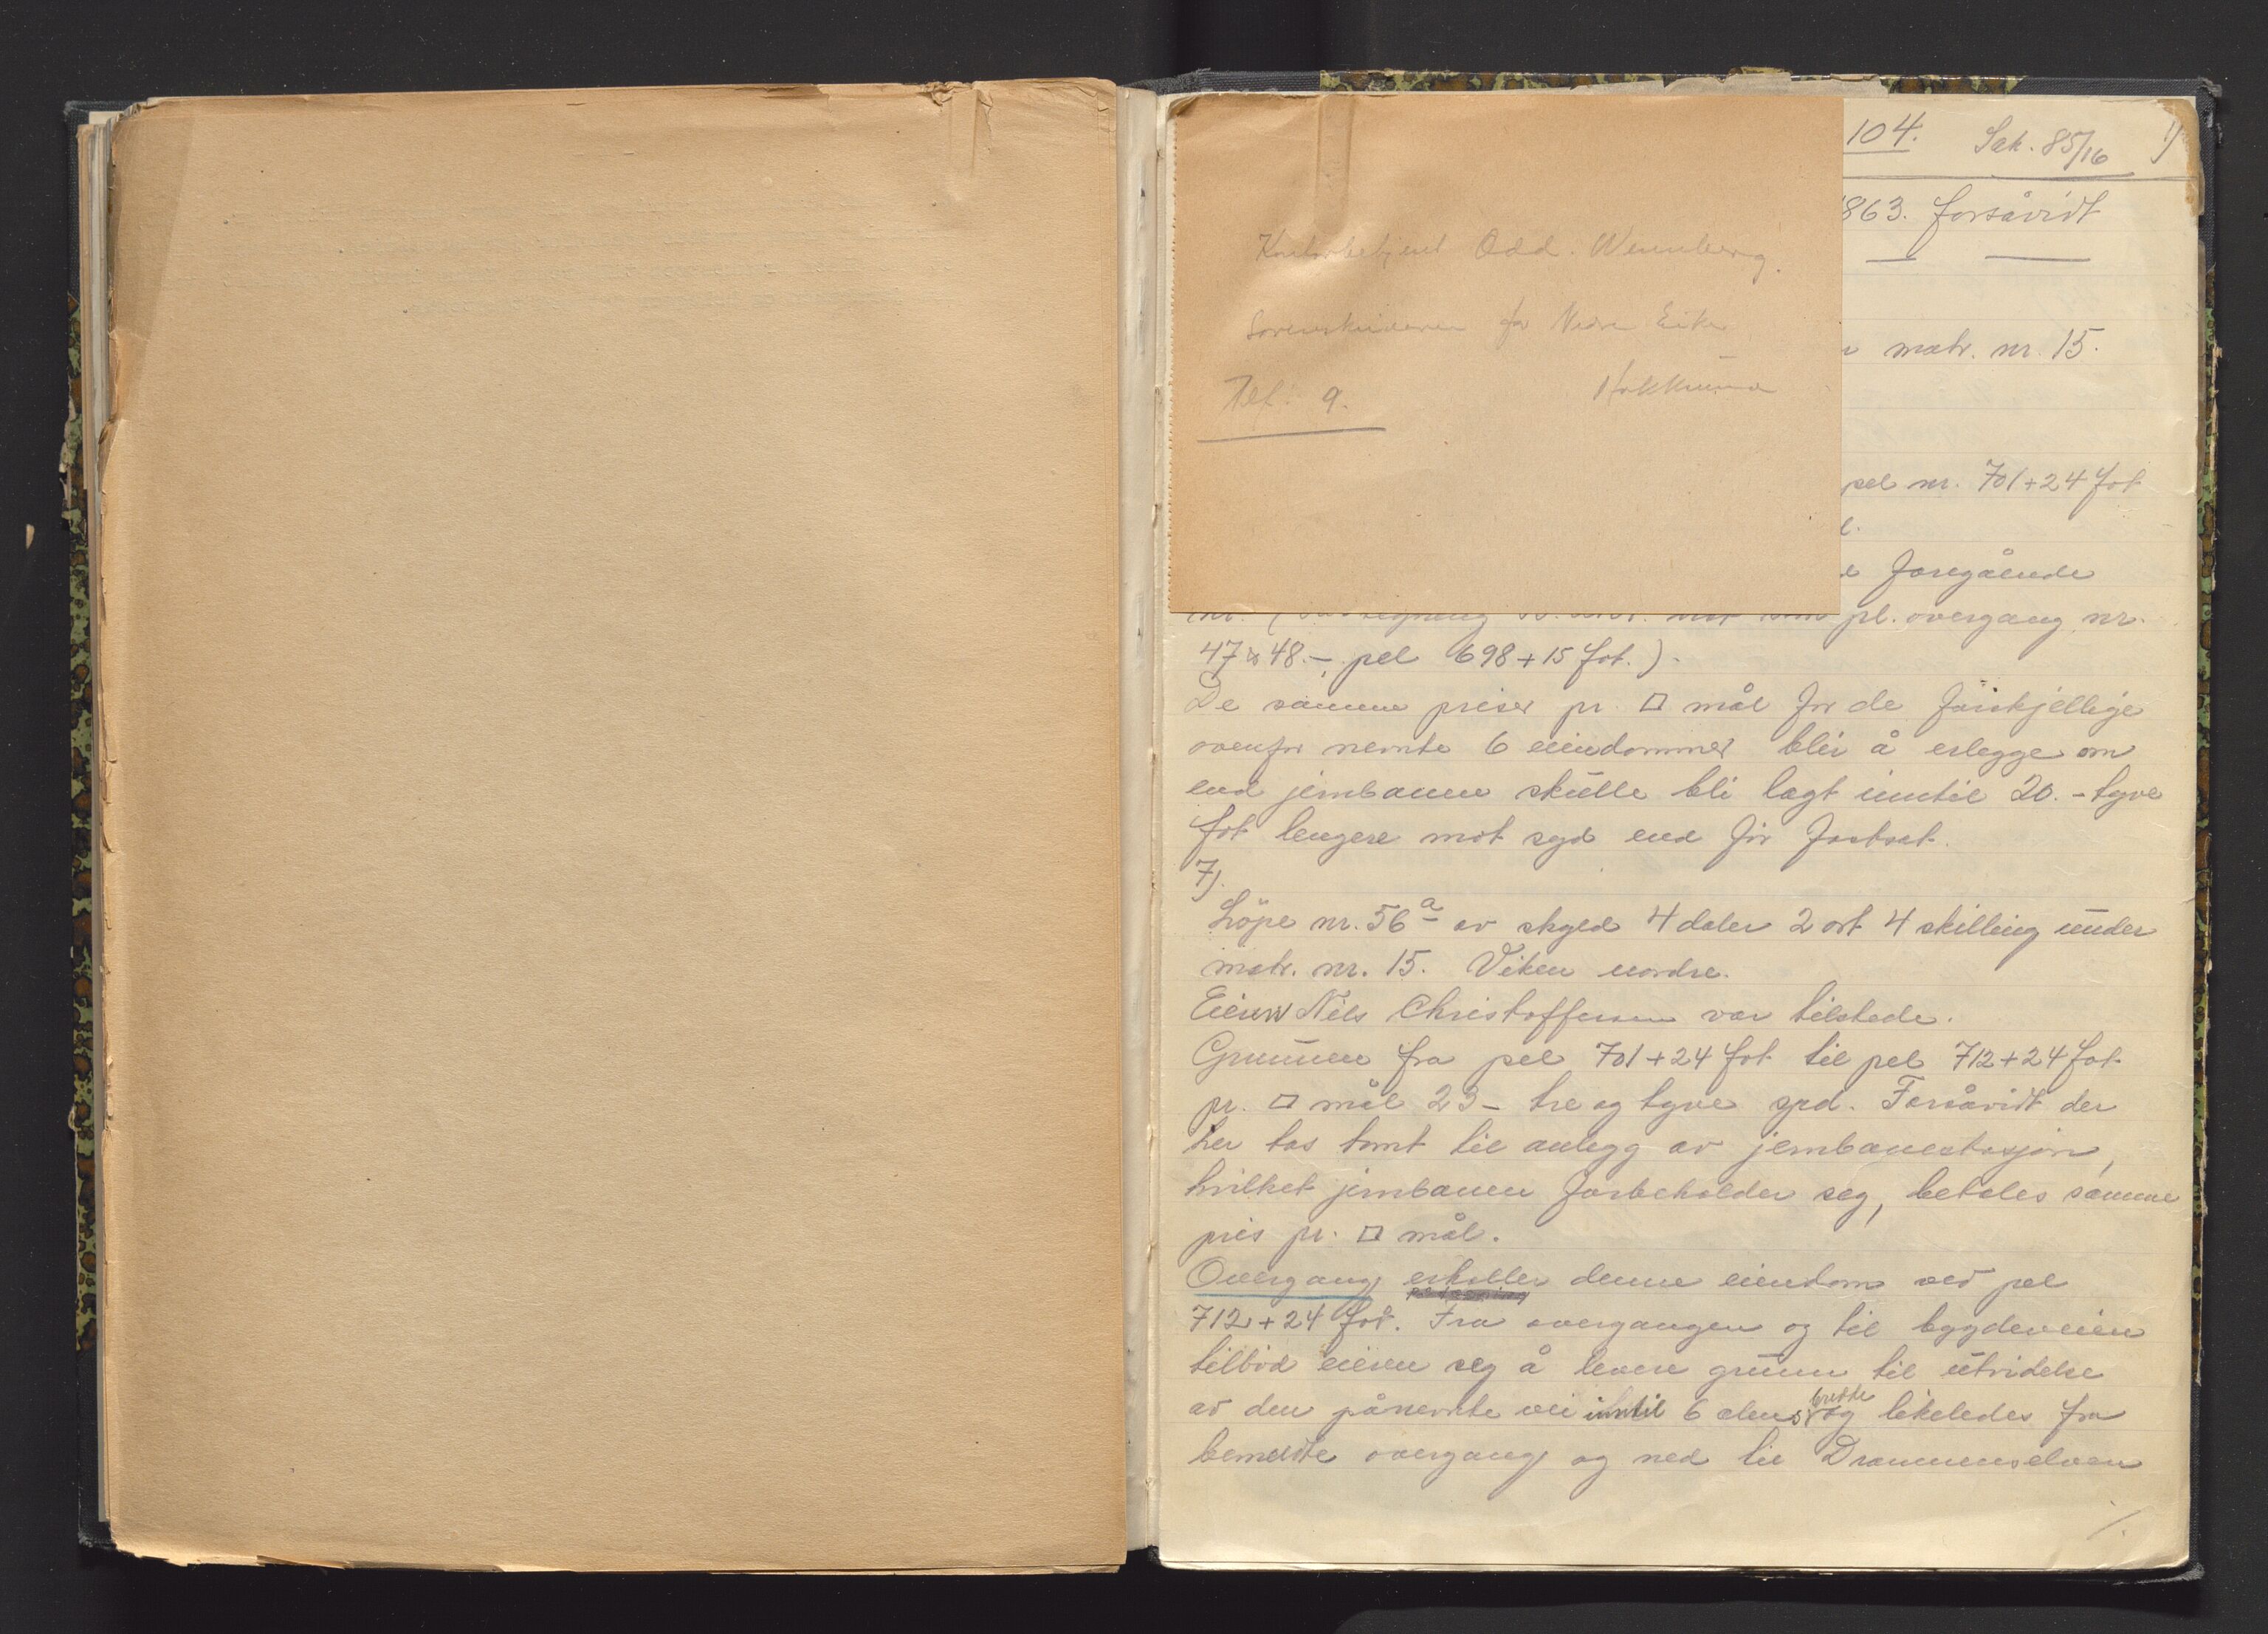 104. Sak. 85/16 1)
1863. forsåvidt
Kontorbetjent Odd. Wennberg.
Sorenskriveren for Nedre Eiker
matr. nr. 15.
Hokksund
Tlf. 9.
pel nr. 701+24 fot
l.
foregående
pl. overgang nr.
47 & 48.-, pel 698+15 fot.).
De samme priser pr. □ mål for de forskjellige
ovenfor nevnte 6 eiendommer blir å erlegge om
end jernbanen skulle bli lagt inntil 20.- tyve
fot lengere mot syd end før fastsat.
7).
Löpe nr. 56 a av skyld 4 daler 2 ort 4 skilling under
matr. nr. 15. Viken nordre.
Eieren Nils Christoffersen var tilstede.
Grunnen fra pel 701+24 fot til pel 712+24 fot
pr. □ mål 23- tre og tyve spd. Forsåvidt der
her tas tomt til anlegg av jernbanestasjon,
hvilket jernbanen forbeholder seg, betales samme
pris pr. □ mål.
Overgang erholder denne eiendom ved pel
712+24 fot. Fra overgangen og til bygdeveien
tilbød eieren seg å levere grunn til utvidelse
av den pånevnte vei inntil 6 alens bredde og likeledes fra
bemeldte overgang og ned til Drammenselven
/.